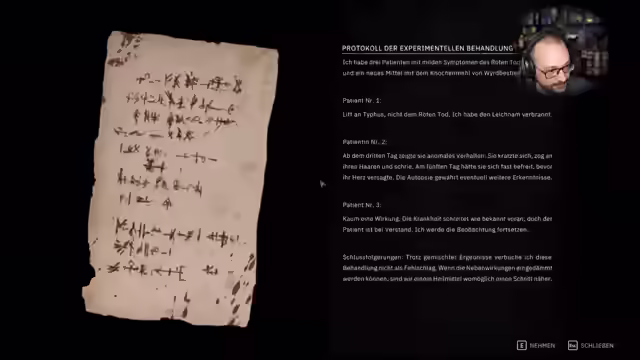 PROTOKOLL DER EXPERIMENTELLEN BEHANDLUNG
Ich habe drei Patienten mit milden Symptomen des Roten
und ein neues Mittel mit dem Knochenmehl von
Patient Nr. 1:
Litt an Typhus, nicht dem Roten Tod. Ich habe den Leichnam verbrannt.
Patientin Nr. 2:
Ab dem dritten Tag zeigte sie anomales Verhalten: Sie kratzte sich, zog an
ihren Haaren und schrie. Am fünften Tag hätte sie sich fast befreit, bevor
ihr Herz versagte. Die Autopsie gewährt eventuell weitere Erkenntnisse.
Patient Nr. 3:
Kaum eine Wirkung. Die Krankheit schreitet wie bekannt voran, doch der
Patient ist bei Verstand. Ich werde die Beobachtung fortsetzen.
Schlussfolgerungen: Trotz gemischter Ergebnisse verbuche ich diese
Behandlung nicht als Fehlschlag. Wenn die Nebenwirkungen eingedämmt
werden können, sind wir einem Heilmittel womöglich einen Schritt näher.
E NEHMEN
Esc SCHLIEßEN